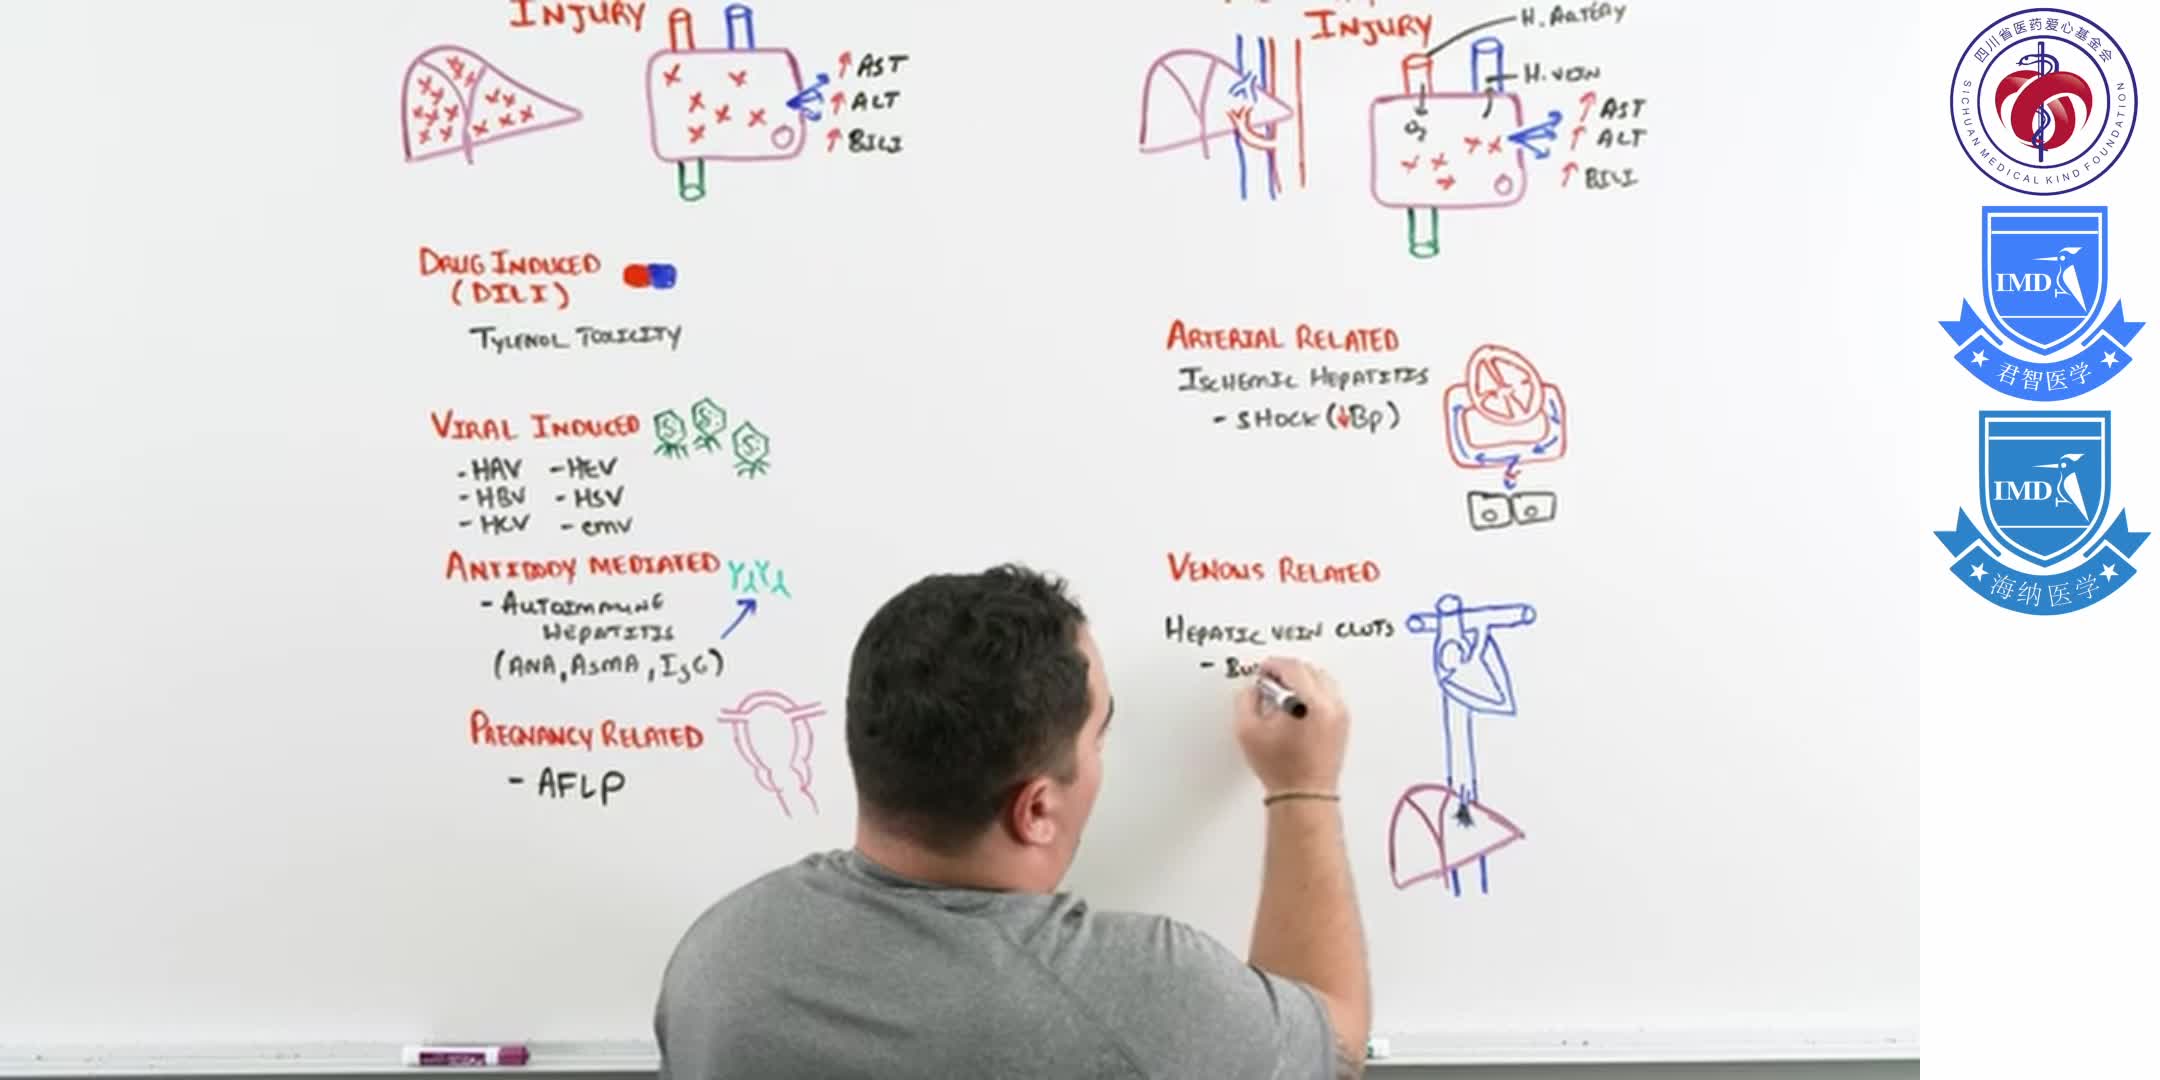 INJURY
↑ AST
↑ ALT
↑ BILI
DRUG INDUCED
(DILI)
TYLENOL TOXICITY
VIRAL INDUCED
- HAV - HEV
- HBV - HSV
- HCV - CMV
ANTIBODY MEDIATED
- AUTOIMMUNE
HEPATITIS
(ANA, ASMA, IgG)
PREGNANCY RELATED
- AFLP
INJURY
H. ARTERY
H. VEIN
O₂
↑ AST
↑ ALT
↑ BILI
ARTERIAL RELATED
ISCHEMIC HEPATITIS
- SHOCK (↓BP)
VENOUS RELATED
HEPATIC VEIN CLOTS
- Bu
四川省医药爱心基金会
SICHUAN MEDICAL KIND FOUNDATION
IMD
君智医学
IMD
海纳医学